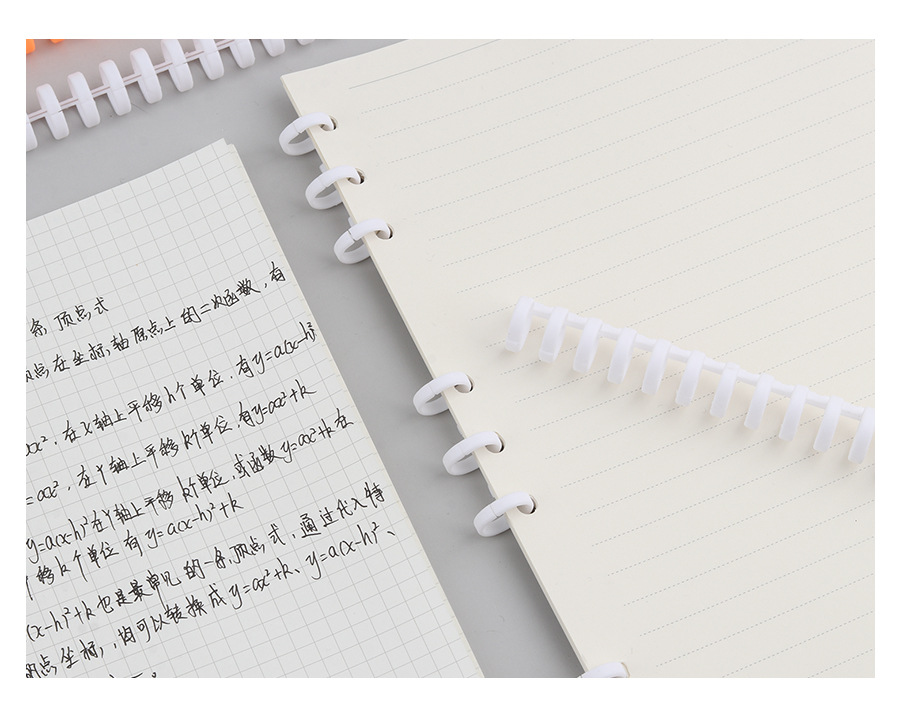 条 顶点式
点在坐标,轴原点上的二次函数,有
x², 在x轴上平移h个单位,有y=a(x-h)²
=ax², 在Y轴上平移k个单位,有y=ax²+k
y=a(x-h)²在Y轴上平移k个单位,或函数y=ax²+k在
移k个单位 有y=a(x-h)²+k
(x-h)²+k也是最常见的一条顶点式,通过代入特
点坐标,,均可以转换成y=ax²+k、y=a(x-h)²、